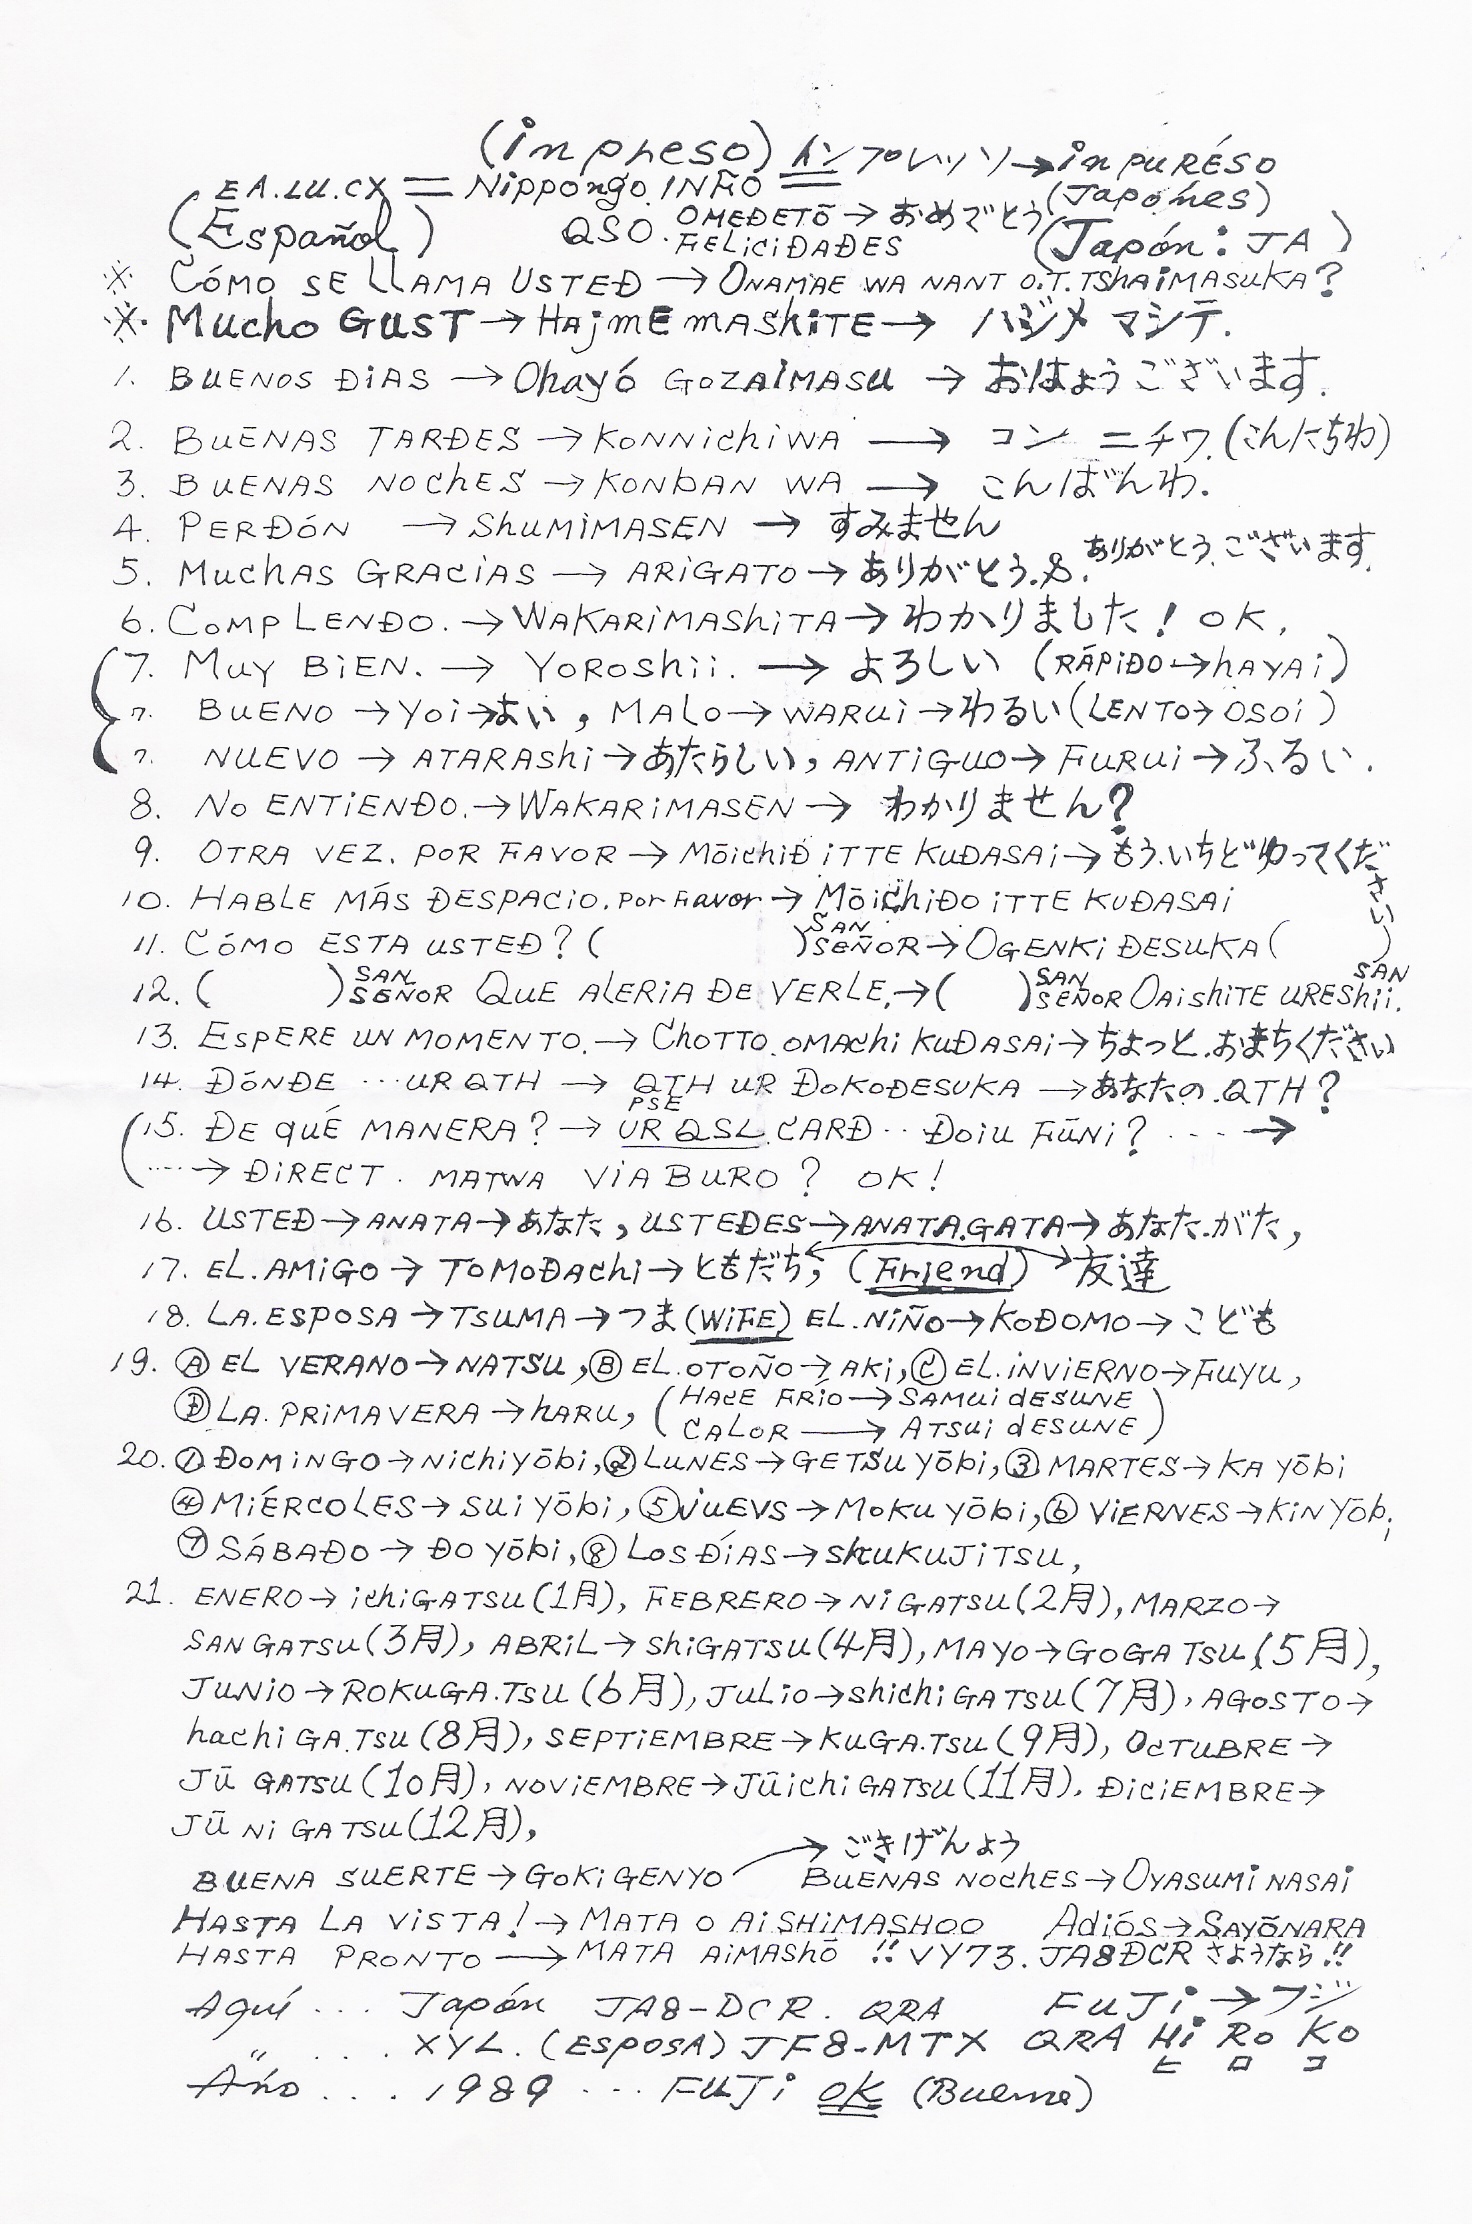 (inpreso) インプレッソ→inpuRÉSO
EA.LU.CX = NippoNgo.INFO = (Japónes)
(Español) QSO. OMEDETŌ→おめでとう (Japón: JA)
FELICIDADES
※ CÓMO SE LLAMA USTED → ONAMAE WA NANT O.T.TSHAIMASUKA?
※. Mucho GUST → HAjmE mASHiTE → ハジメ マシテ.
1. BUENOS DiAS → Ohayó GOZAiMASU → おはようございます.
2. BUENAS TARDES → KONNichiWA → コンニチワ. (こんにちわ)
3. BUENAS NOchES → KONbAN WA → こんばんわ.
4. PERDÓN → ShUMiMASEN → すみません
5. MUchAS GRACiAS → ARiGATO → ありがとう.&. ありがとう.ございます.
6. COMPLENDO. → WAKARiMAShiTA → わかりました! OK.
7. MUY BiEN. → YOROShii. → よろしい (RÁPiDO→hAYAi)
〃. BUENO → YOi→よい, MALO→WARUi→わるい(LENTO→OSOi)
〃. NUEVO → ATARAShi→あたらしい, ANTiGUO→FURUi→ふるい.
8. NO ENTiENDO.→WAKARiMASEN→ わかりません?
9. OTRA VEZ. POR FAVOR → MōichiD iTTE KUDASAi→もう.いちど ゆってください
10. HABLE MÁS DESPACiO. Por Favor → MōichiDO iTTE KUDASAi
11. CÓMO ESTA USTED? ( ) SAN SEÑOR → OGENKi DESUKA ( ) SAN
12. ( ) SAN SEÑOR QUE ALERiA DE VERLE.→( ) SAN SEÑOR OAiShiTE URESHii.
13. ESPERE UN MOMENTO.→ CHOTTO.OMAchi KUDASAi→ちょっと.おまちください
14. DÓNDE ... UR QTH → QTH UR DOKODESUKA → あなたの.QTH?
15. DE qUÉ MANERA? → PSE UR QSL.CARD.. DOiU FŪNi? .... →
....→ DiRECT. MATWA ViA BURO? OK!
16. USTED→ANATA→あなた, USTEDES→ANATA.GATA→あなた.がた,
17. EL.AMiGO → TOMODAchi→ともだち, (Friend) → 友達
18. LA.ESPOSA→TSUMA→つま(WiFE) EL.NiÑO→KODOMO→こども
19. Ⓐ EL VERANO→NATSU, Ⓑ EL.OTOÑO→AKi, Ⓒ EL.iNViERNO→FUYU,
Ⓓ LA.PRiMAVERA→hARU, (HACE FRÍO→SAMUi dESUNE
CALOR → ATSUi dESUNE)
20. ① DOMiNGO→Nichiyōbi, ② LUNES→GETSU yōbi, ③ MARTES→KA yōbi
④ MiÉRCOLES→SUi yōbi, ⑤ jUEVS→MOKU yōbi, ⑥ ViERNES→KiN yōbi
⑦ SÁBADO → DO yōbi, ⑧ LOS DÍAS→ShUKUJiTSU,
21. ENERO→ichiGATSU(1月), FEBRERO→NiGATSU(2月), MARZO→
SANGATSU(3月), ABRiL→ShiGATSU(4月), MAYO→GOGATSU(5月),
JUNiO→ROKUGA.TSU(6月), JULiO→Shichi GATSU(7月), AGOSTO→
hachi GA.TSU(8月), SEPTiEMBRE→KUGA.TSU(9月), OCTUBRE→
JŪ GATSU(10月), NOViEMBRE→JŪichi GATSU(11月). DiCiEMBRE→
JŪ Ni GATSU(12月),
→ ごきげんよう
BUENA SUERTE→GOKiGENYO BUENAS NOchES→OYASUMi NASAi
HASTA LA ViSTA!→MATA O AiSHiMASHOO Adiós→SAYŌNARA
HASTA PRONTO → MATA AiMAShō !! VY73. JA8DCR さようなら!!
Aquí ... Japón JA8-DCR. QRA FUJi → フジ
〃 .... XYL. (ESPOSA) JF8-MTX QRA Hi RO KO
ヒ ロ コ
Año ... 1989 ... FUJi OK (Bueno)